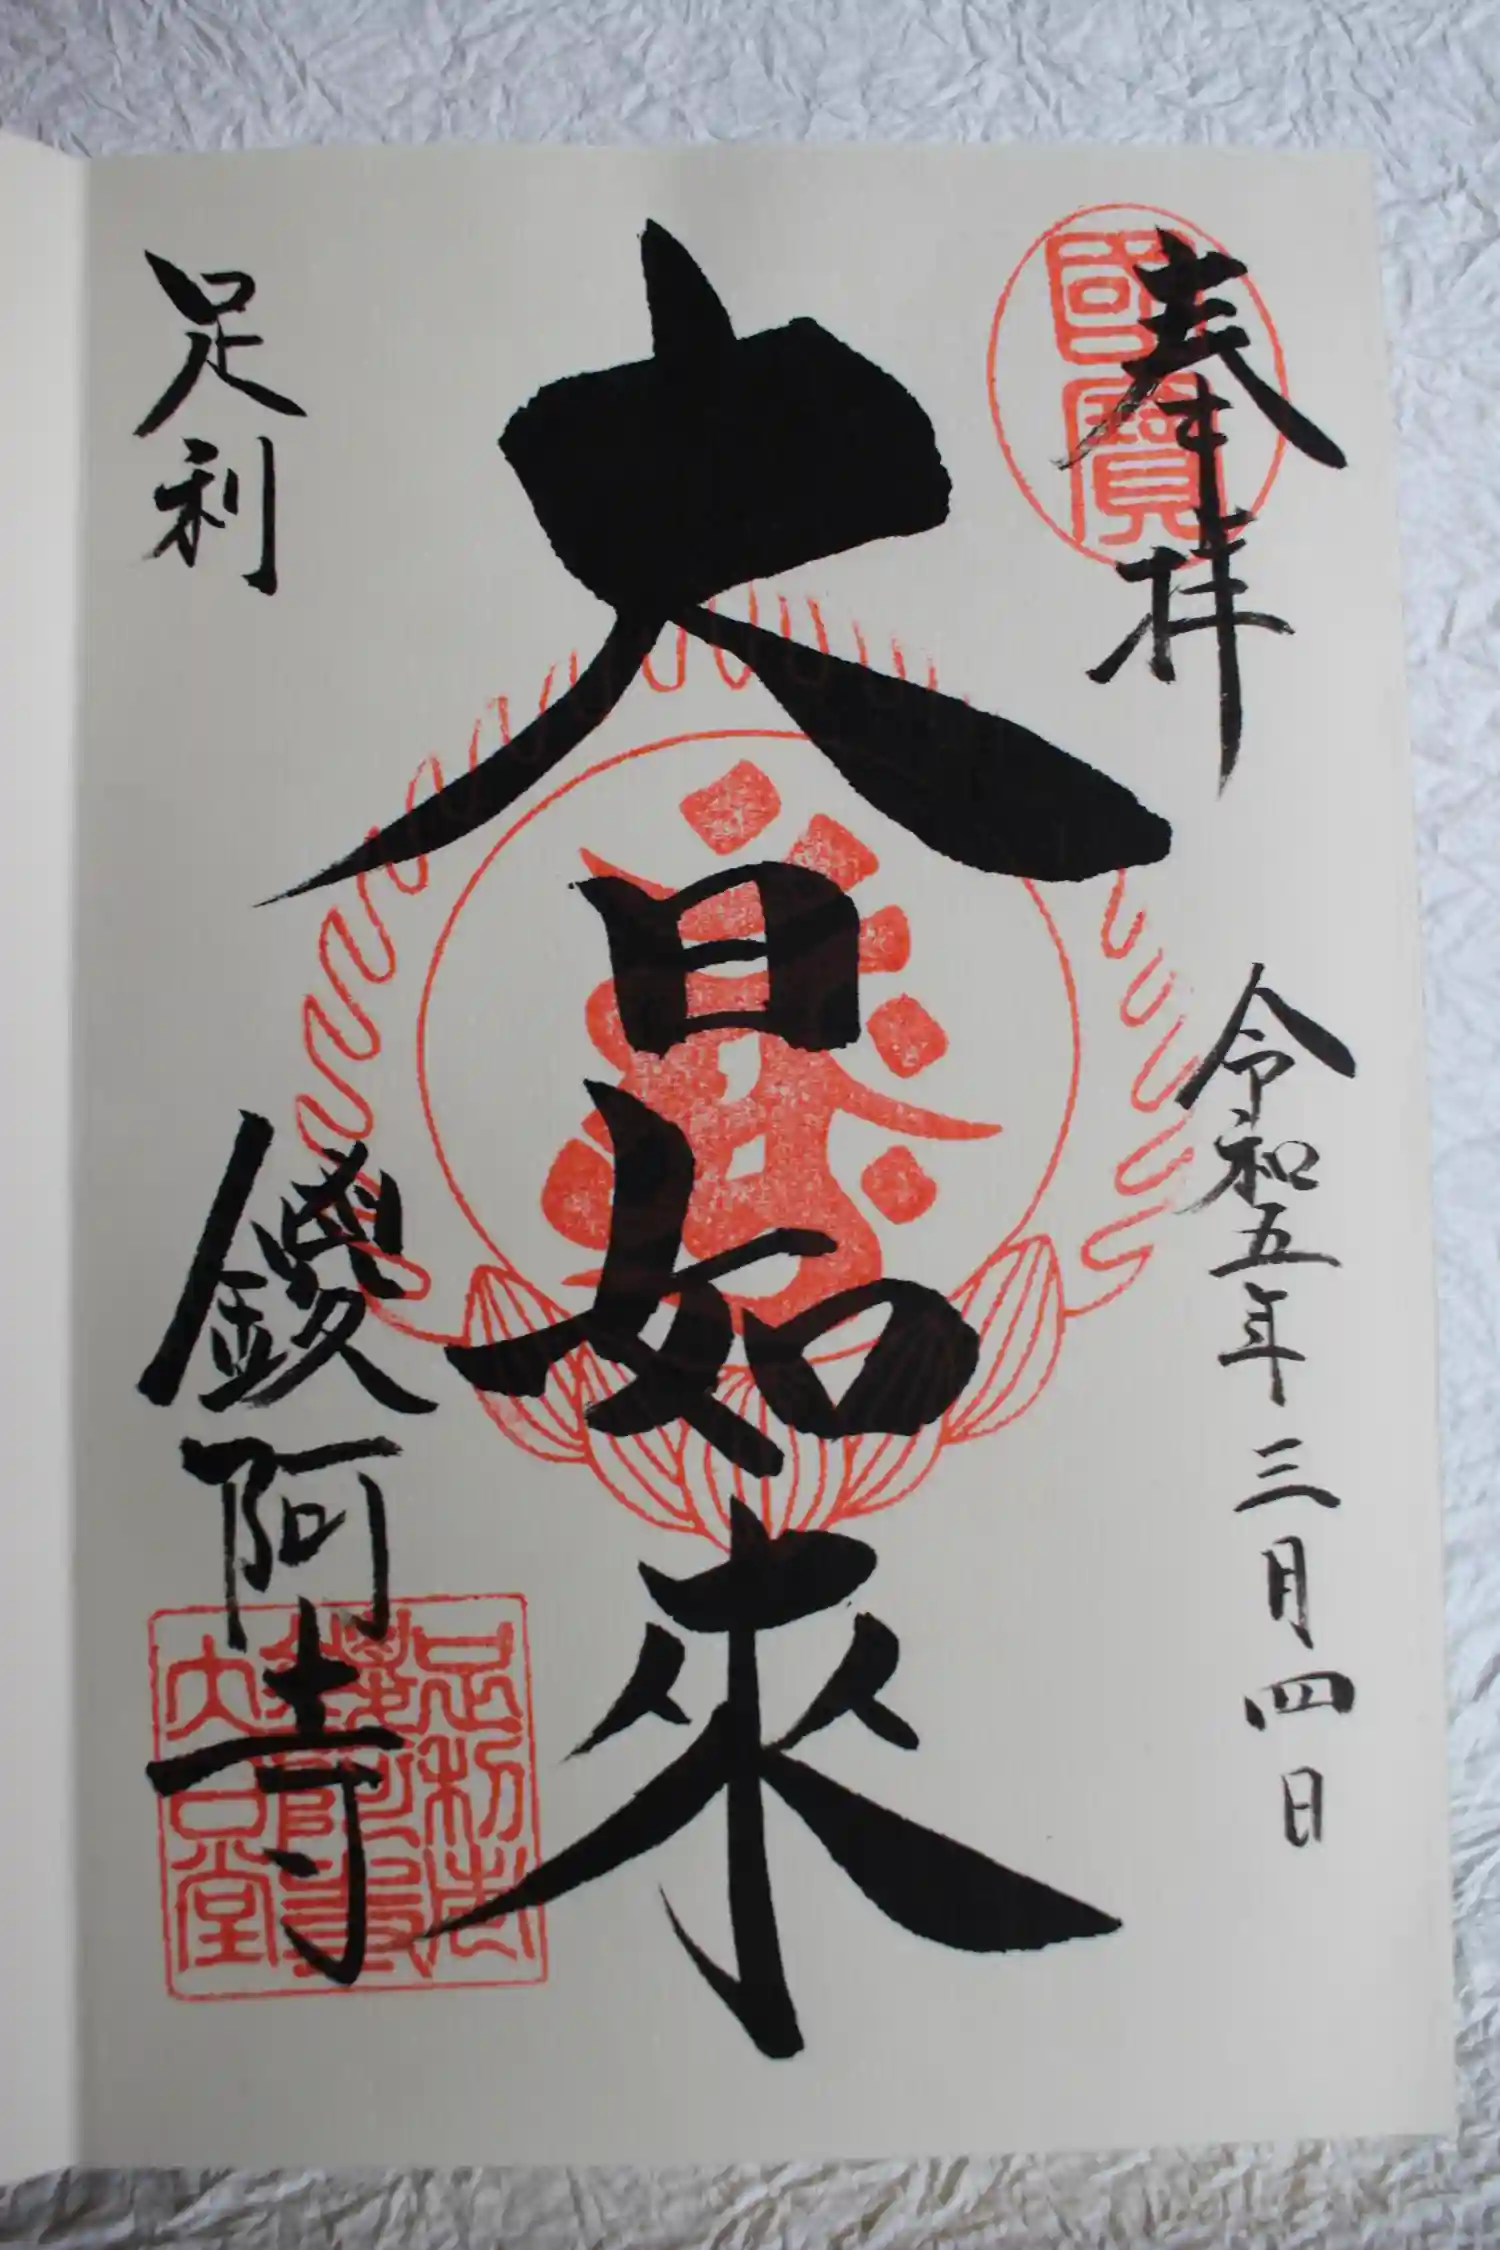 奉拝
國寶
令和五年三月四日
大日如來
足利
鑁阿寺
足利市
鑁阿寺
大日堂